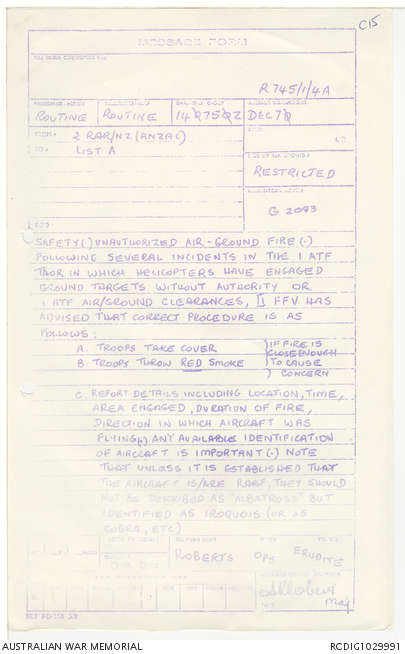 C15
MESSAGE FORM
R745/1/4A
ROUTINE
ROUTINE
DEC 70
2 RAR/NZ (ANZAC)
LIST A
RESTRICTED
G 2093
SAFETY (.) UNAUTHORIZED AIR-GROUND FIRE (.)
FOLLOWING SEVERAL INCIDENTS IN THE 1 ATF
TAOR IN WHICH HELICOPTERS HAVE ENGAGED
GROUND TARGETS WITHOUT AUTHORITY OR
1 ATF AIR/GROUND CLEARANCES, II FFV HAS
ADVISED THAT CORRECT PROCEDURE IS AS
FOLLOWS:
A. TROOPS TAKE COVER
B. TROOPS THROW RED SMOKE
) IF FIRE IS
) CLOSE ENOUGH
) TO CAUSE
) CONCERN
C. REPORT DETAILS INCLUDING LOCATION, TIME,
AREA ENGAGED, DURATION OF FIRE,
DIRECTION IN WHICH AIRCRAFT WAS
FLYING(.) ANY AVAILABLE IDENTIFICATION
OF AIRCRAFT IS IMPORTANT (.) NOTE
THAT UNLESS IT IS ESTABLISHED THAT
THE AIRCRAFT IS/ARE RAAF, THEY SHOULD
NOT BE DESCRIBED AS "ALBATROSS" BUT
IDENTIFIED AS IROQUOIS (OR AS
COBRA, ETC)
ROBERTS
OPS
ERUDITE
Maj
AUSTRALIAN WAR MEMORIAL
RCDIG1029991